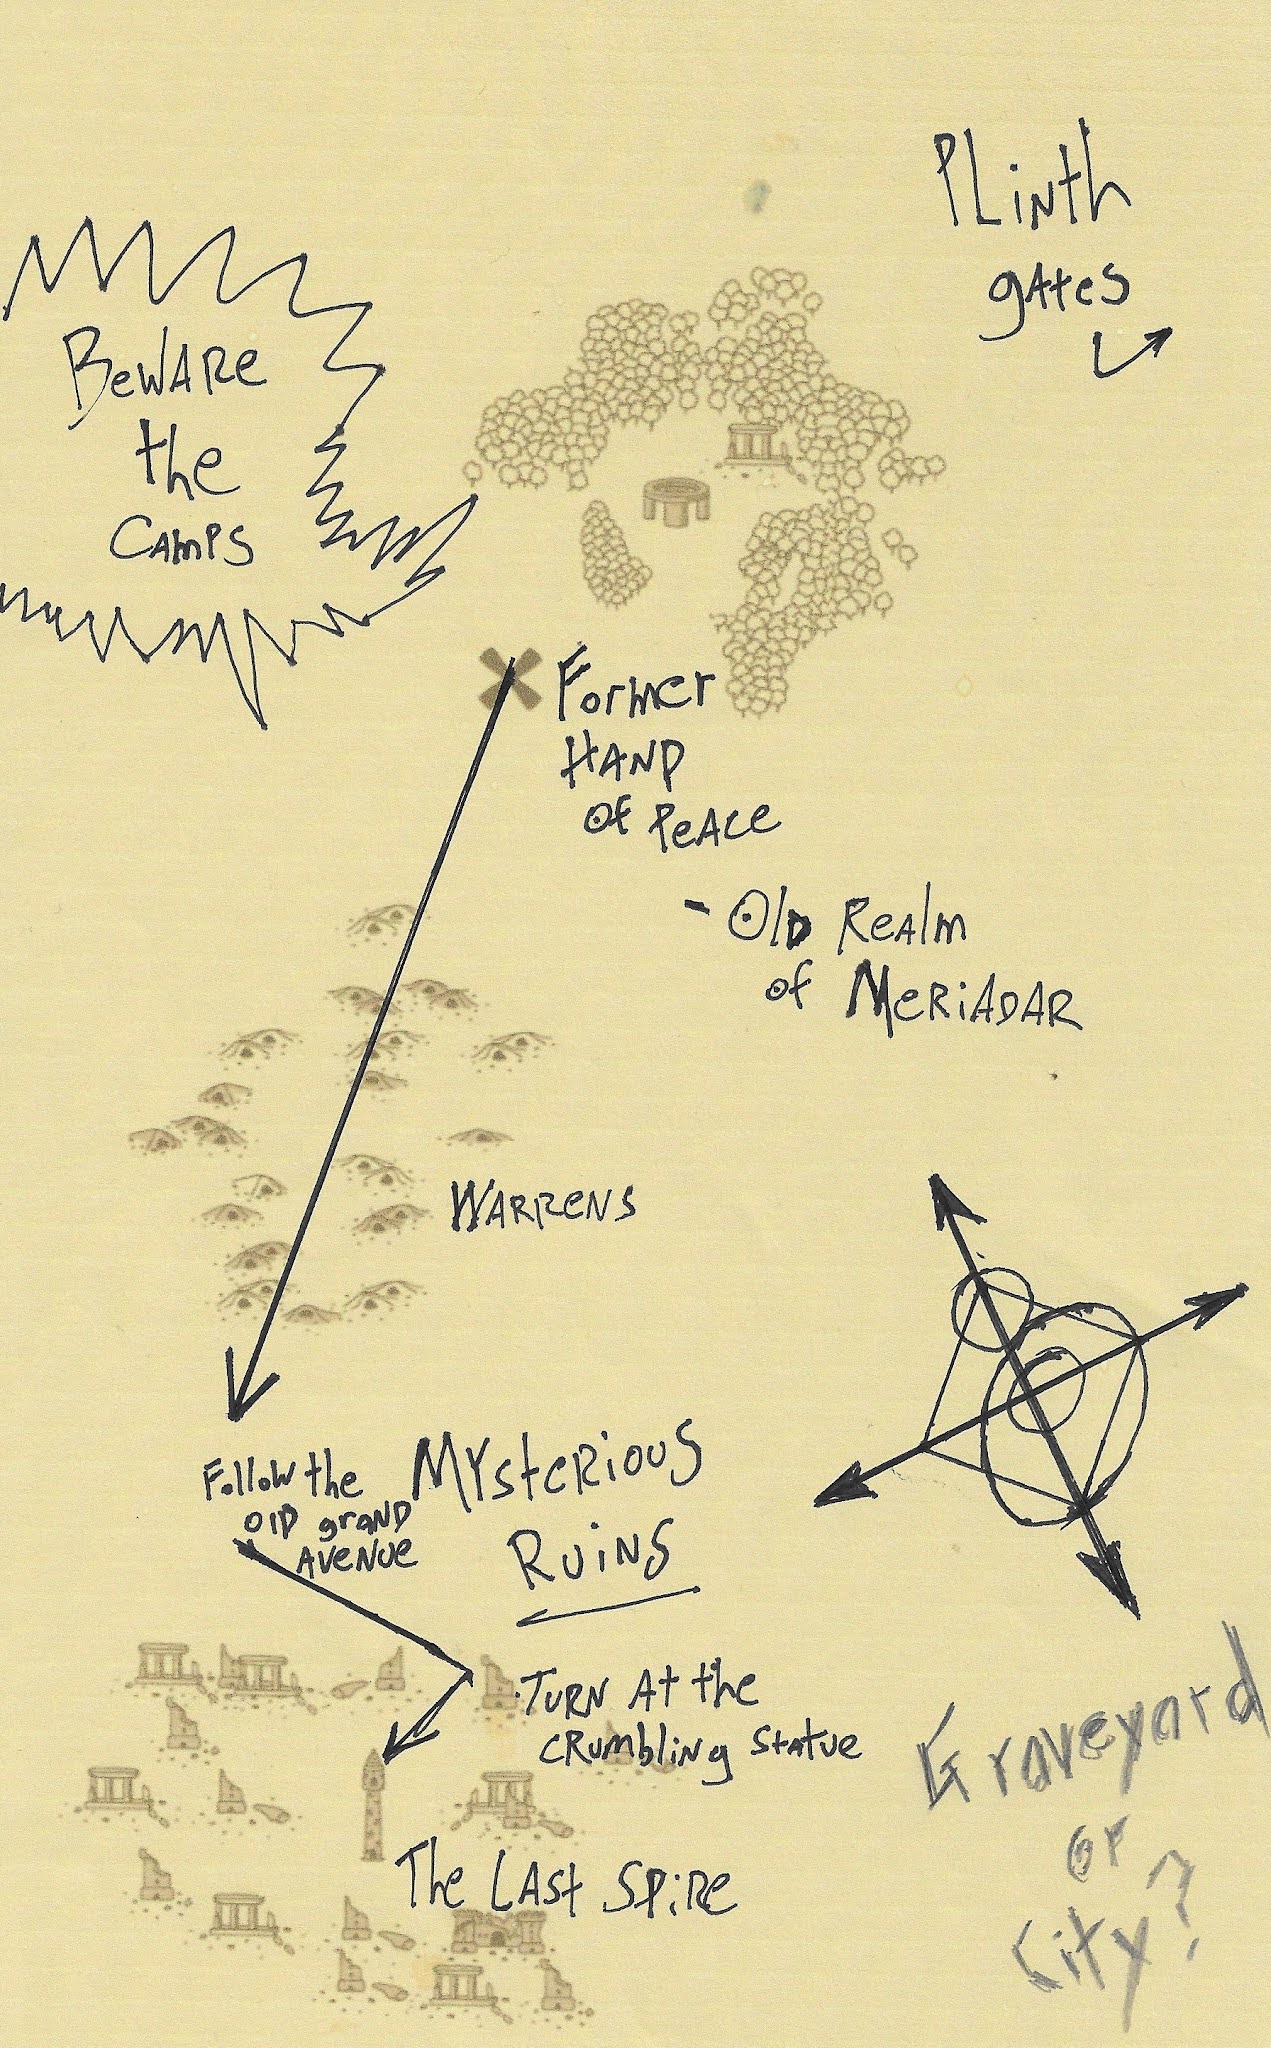 PLinth
gates
Beware
the
Camps
Former
Hand
of Peace
- Old Realm
of Meriadar
Warrens
Follow the
old grand
Avenue
Mysterious
Ruins
Turn at the
crumbling statue
The Last Spire
Graveyard
or
City?